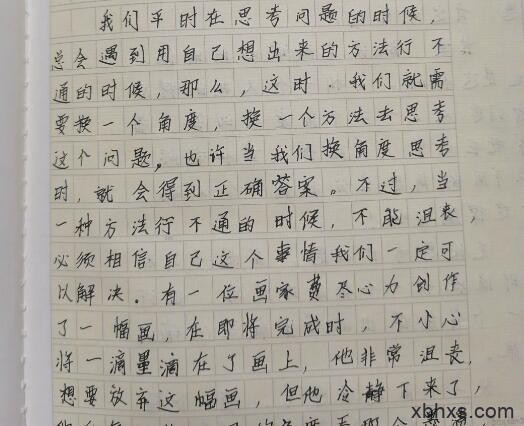 我们平时在思考问题的时候,
总会遇到用自己想出来的方法行不
通的时候,那么,这时,我们就需
要换一个角度,换一个方法去思考
这个问题。也许当我们换角度思考
时,就会得到正确答案。不过,当
一种方法行不通的时候,不能沮丧,
必须相信自己这个事情我们一定可
以解决.有一位画家费尽心力创作
了一幅画,在即将完成时,不小心
将一滴墨滴在了画上,他非常沮丧,
想要放弃这幅画,但他冷静下来了,
xbhxs.com